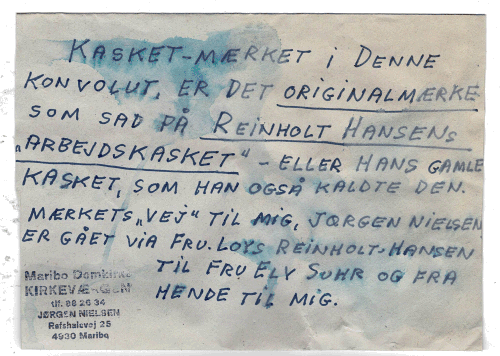 KASKET-MÆRKET i DENNE
KONVOLUT, ER DET ORIGINALMÆRKE
SOM SAD PÅ REINHOLT HANSENS
„ARBEJDSKASKET" - ELLER HANS GAMLE
KASKET, SOM HAN OGSÅ KALDTE DEN.
MÆRKETS „VEJ" TIL MIG, JØRGEN NIELSEN
ER GÅET VIA FRU. LOYS REINHOLT-HANSEN
TIL FRU ELV SUHR OG FRA
HENDE TIL MIG.
Maribo Domkirke
KIRKEVÆRGEN
tlf. 88 26 34
JØRGEN NIELSEN
Refshalevej 25
4930 Maribo